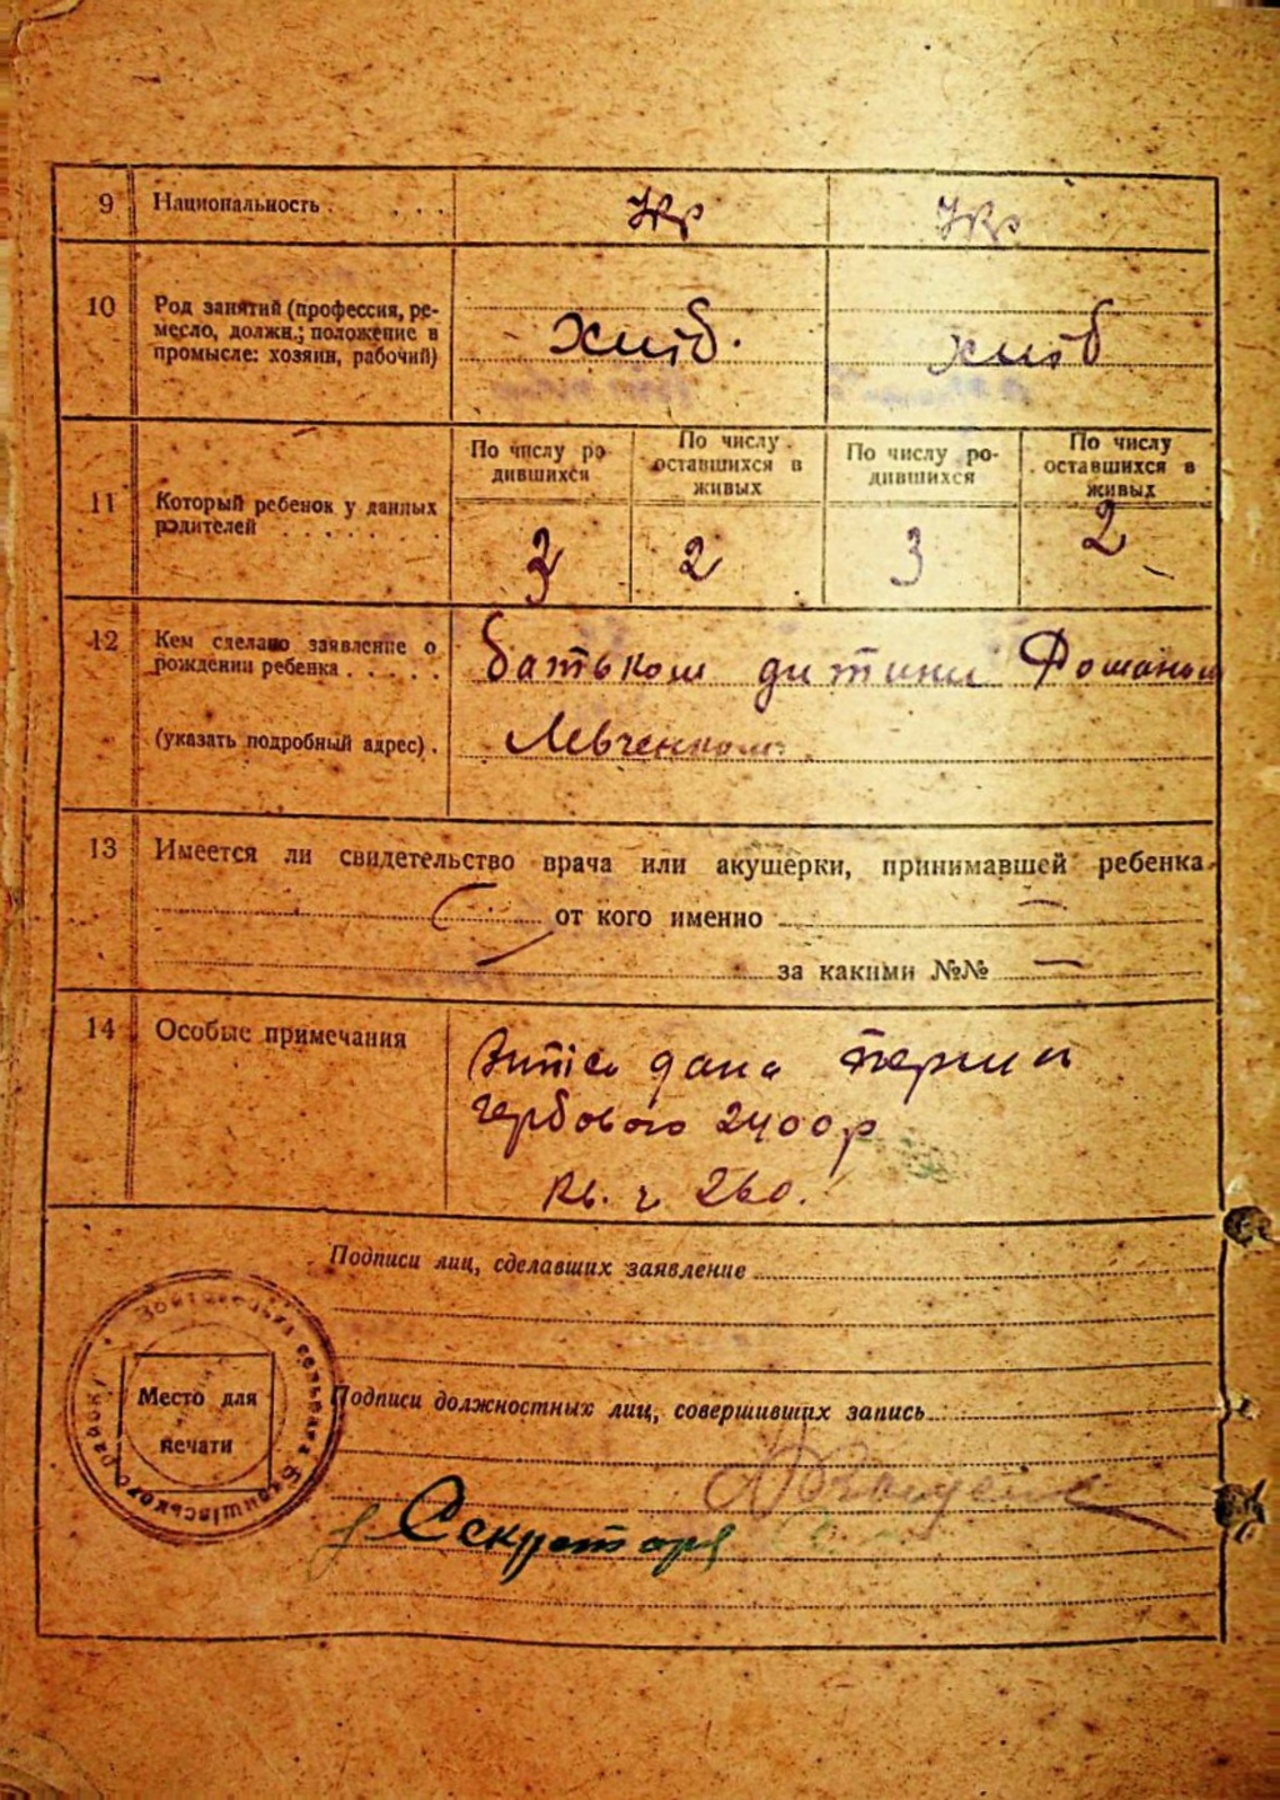 9 Национальность . . . . Укр Укр
10 Род занятий (профессия, ре-
месло, должн.; положение в
промысле: хозяин, рабочий)
хліб. хліб
11 Который ребенок у данных
родителей . . . . . . . .
По числу ро
дившихся
По числу
оставшихся в
живых
По числу ро-
дившихся
По числу
оставшихся в
живых
3 2 3 2
12 Кем сделано заявление о
рождении ребенка . . . . .
(указать подробный адрес) .
батьком дитини Фоманом
Левченком
13 Имеется ли свидетельство врача или акушерки, принимавшей ребенка
от кого именно —
за какими №№ —
14 Особые примечания
Витісь дана
гербового 2400р
Кв. ч 260.
Подписи лиц, сделавших заявление
Подписи должностных лиц, совершивших запись
Место для
печати
сельрада Баришівського району
Секретарь